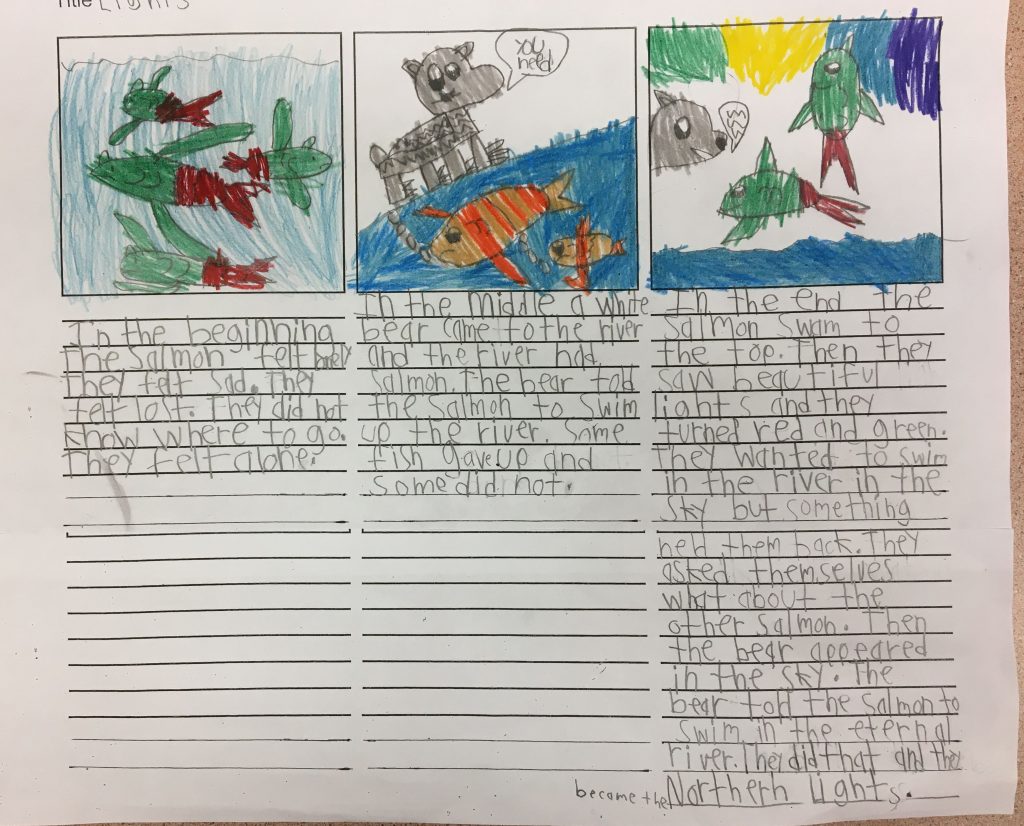 Title Lights
you
need
In the beginning
the salmon felt lonely
They felt sad. They
felt lost. They did not
know where to go.
They felt alone.
In the middle a white
bear came to the river
and the river had
salmon. The bear told
the salmon to swim
up the river. Some
fish gave up and
some did not.
In the end the
salmon swam to
the top. Then they
saw beautiful
lights and they
turned red and green.
they wanted to swim
in the river in the
sky but something
held them back. They
asked themselves
what about the
other salmon. Then
the bear appeared
in the sky. The
bear told the salmon to
swim in the eternal
river. They did that and they
become the Northern Lights.